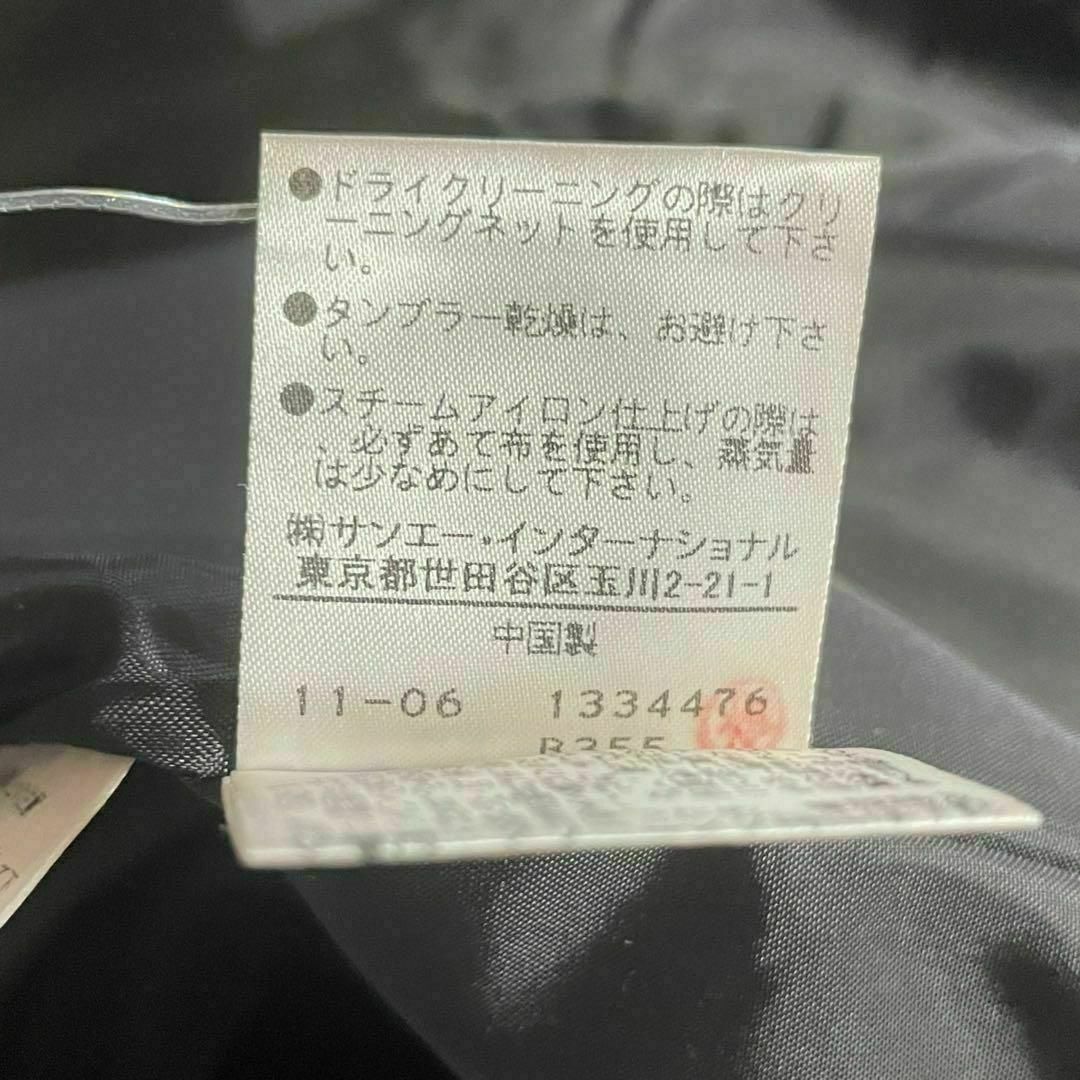 ●ドライクリーニングの際はクリ
ーニングネットを使用して下さ
い。
●タンブラー乾燥は、お避け下さ
い。
●スチームアイロン仕上げの際は
、必ずあて布を使用し、蒸気量
は少なめにして下さい。
㈱サンエー・インターナショナル
東京都世田谷区玉川2-21-1
中国製
11-06 1334476
B355